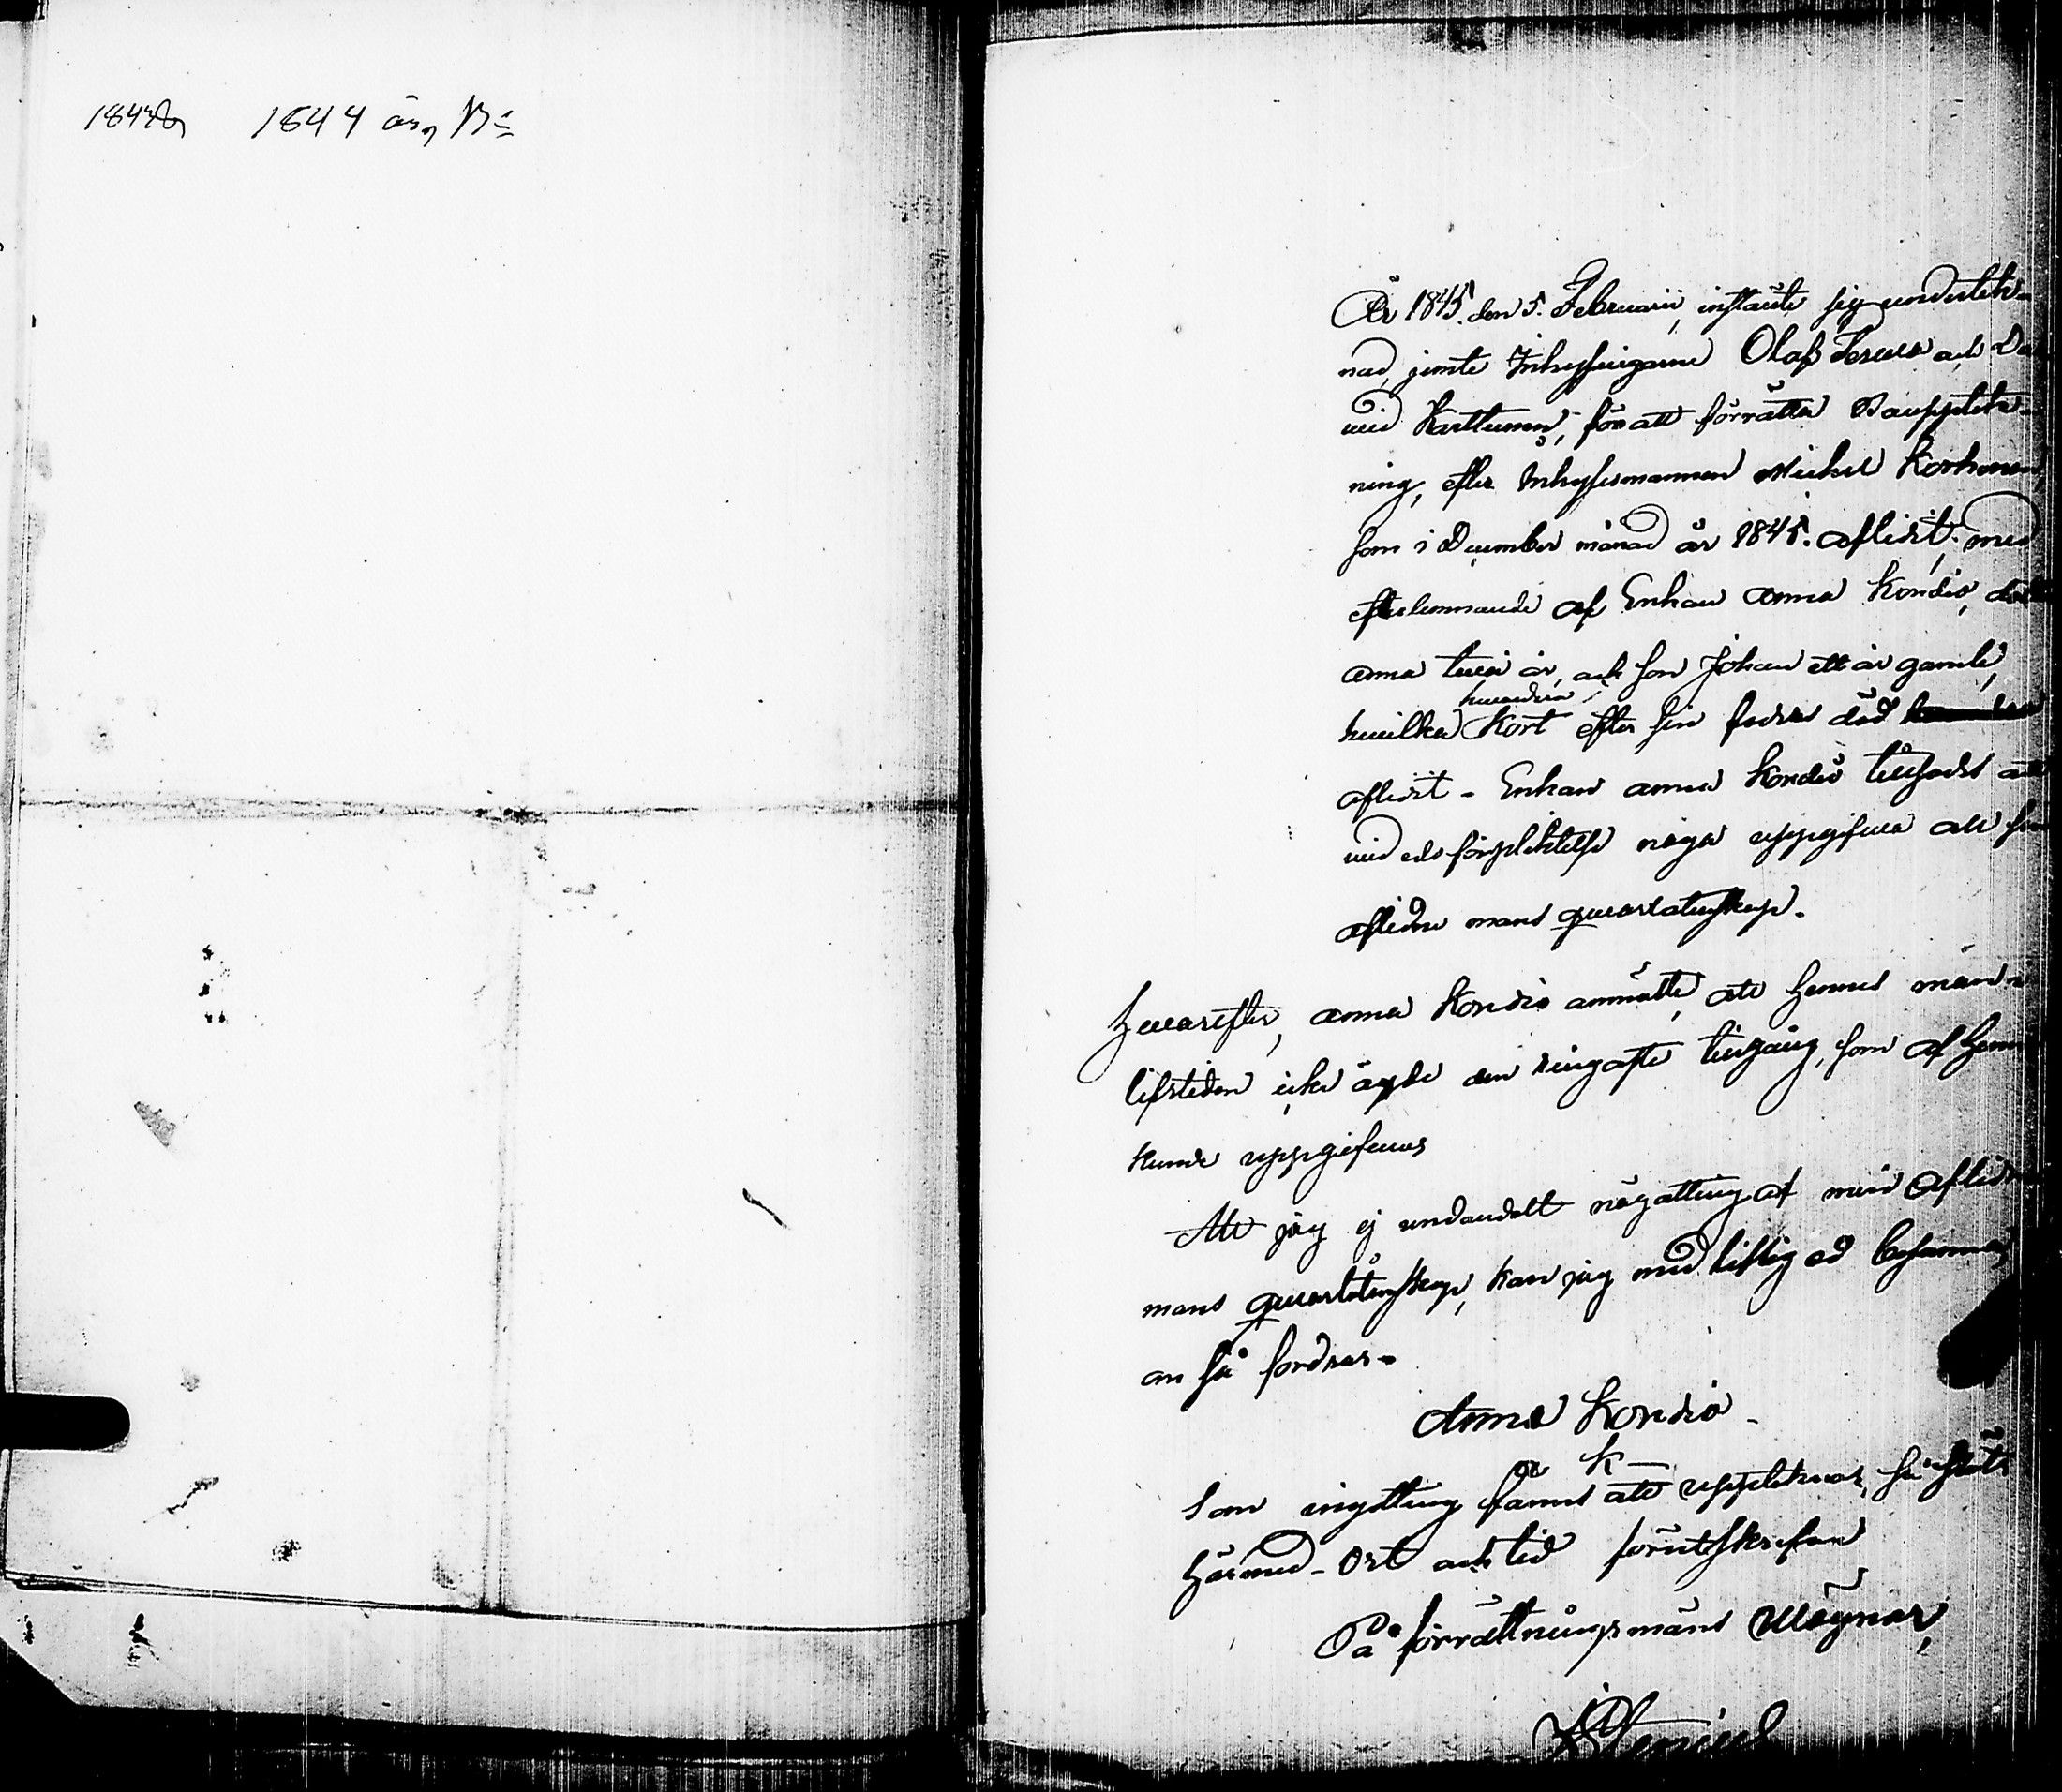 1844 års
År 1845. den 5. Februarii, instälte sig undertek-
nad, jemte Inhysingarne Olof Terwa och Da
wid Karttunen, för att förrätta Bouppteck-
ning, efter Inhysesmannen Mickel Korhonen
som i December månad år 1845. aflidit, med
efterlemnande af Enkan Anna Kondio, dotter
Anna twå år, och son Johan ett år gamle,
hwardera
hwilka kort efter sin faders död
aflidit - Enkan Anna Kondio tillsades att
wid edsförpliktelse noga uppgifwa all sin
aflidne mans qwarlåtenskap.
Hwarefter, Anna Kondio anmälte, att hennes man i
lifstiden icke ägde den ringaste tillgång, som af henne
kunde uppgifwas
Att jag ej undandolt någotting af min aflidne
mans qwarlåtenskap, kan jag med liflig ed besanna,
om så fordras -
Anna Kondio -
K
Som ingotting fanns att upptecknas, så slöts
härmed - Ort och tid förutskrefne
På förrättningsmäns wägnar,